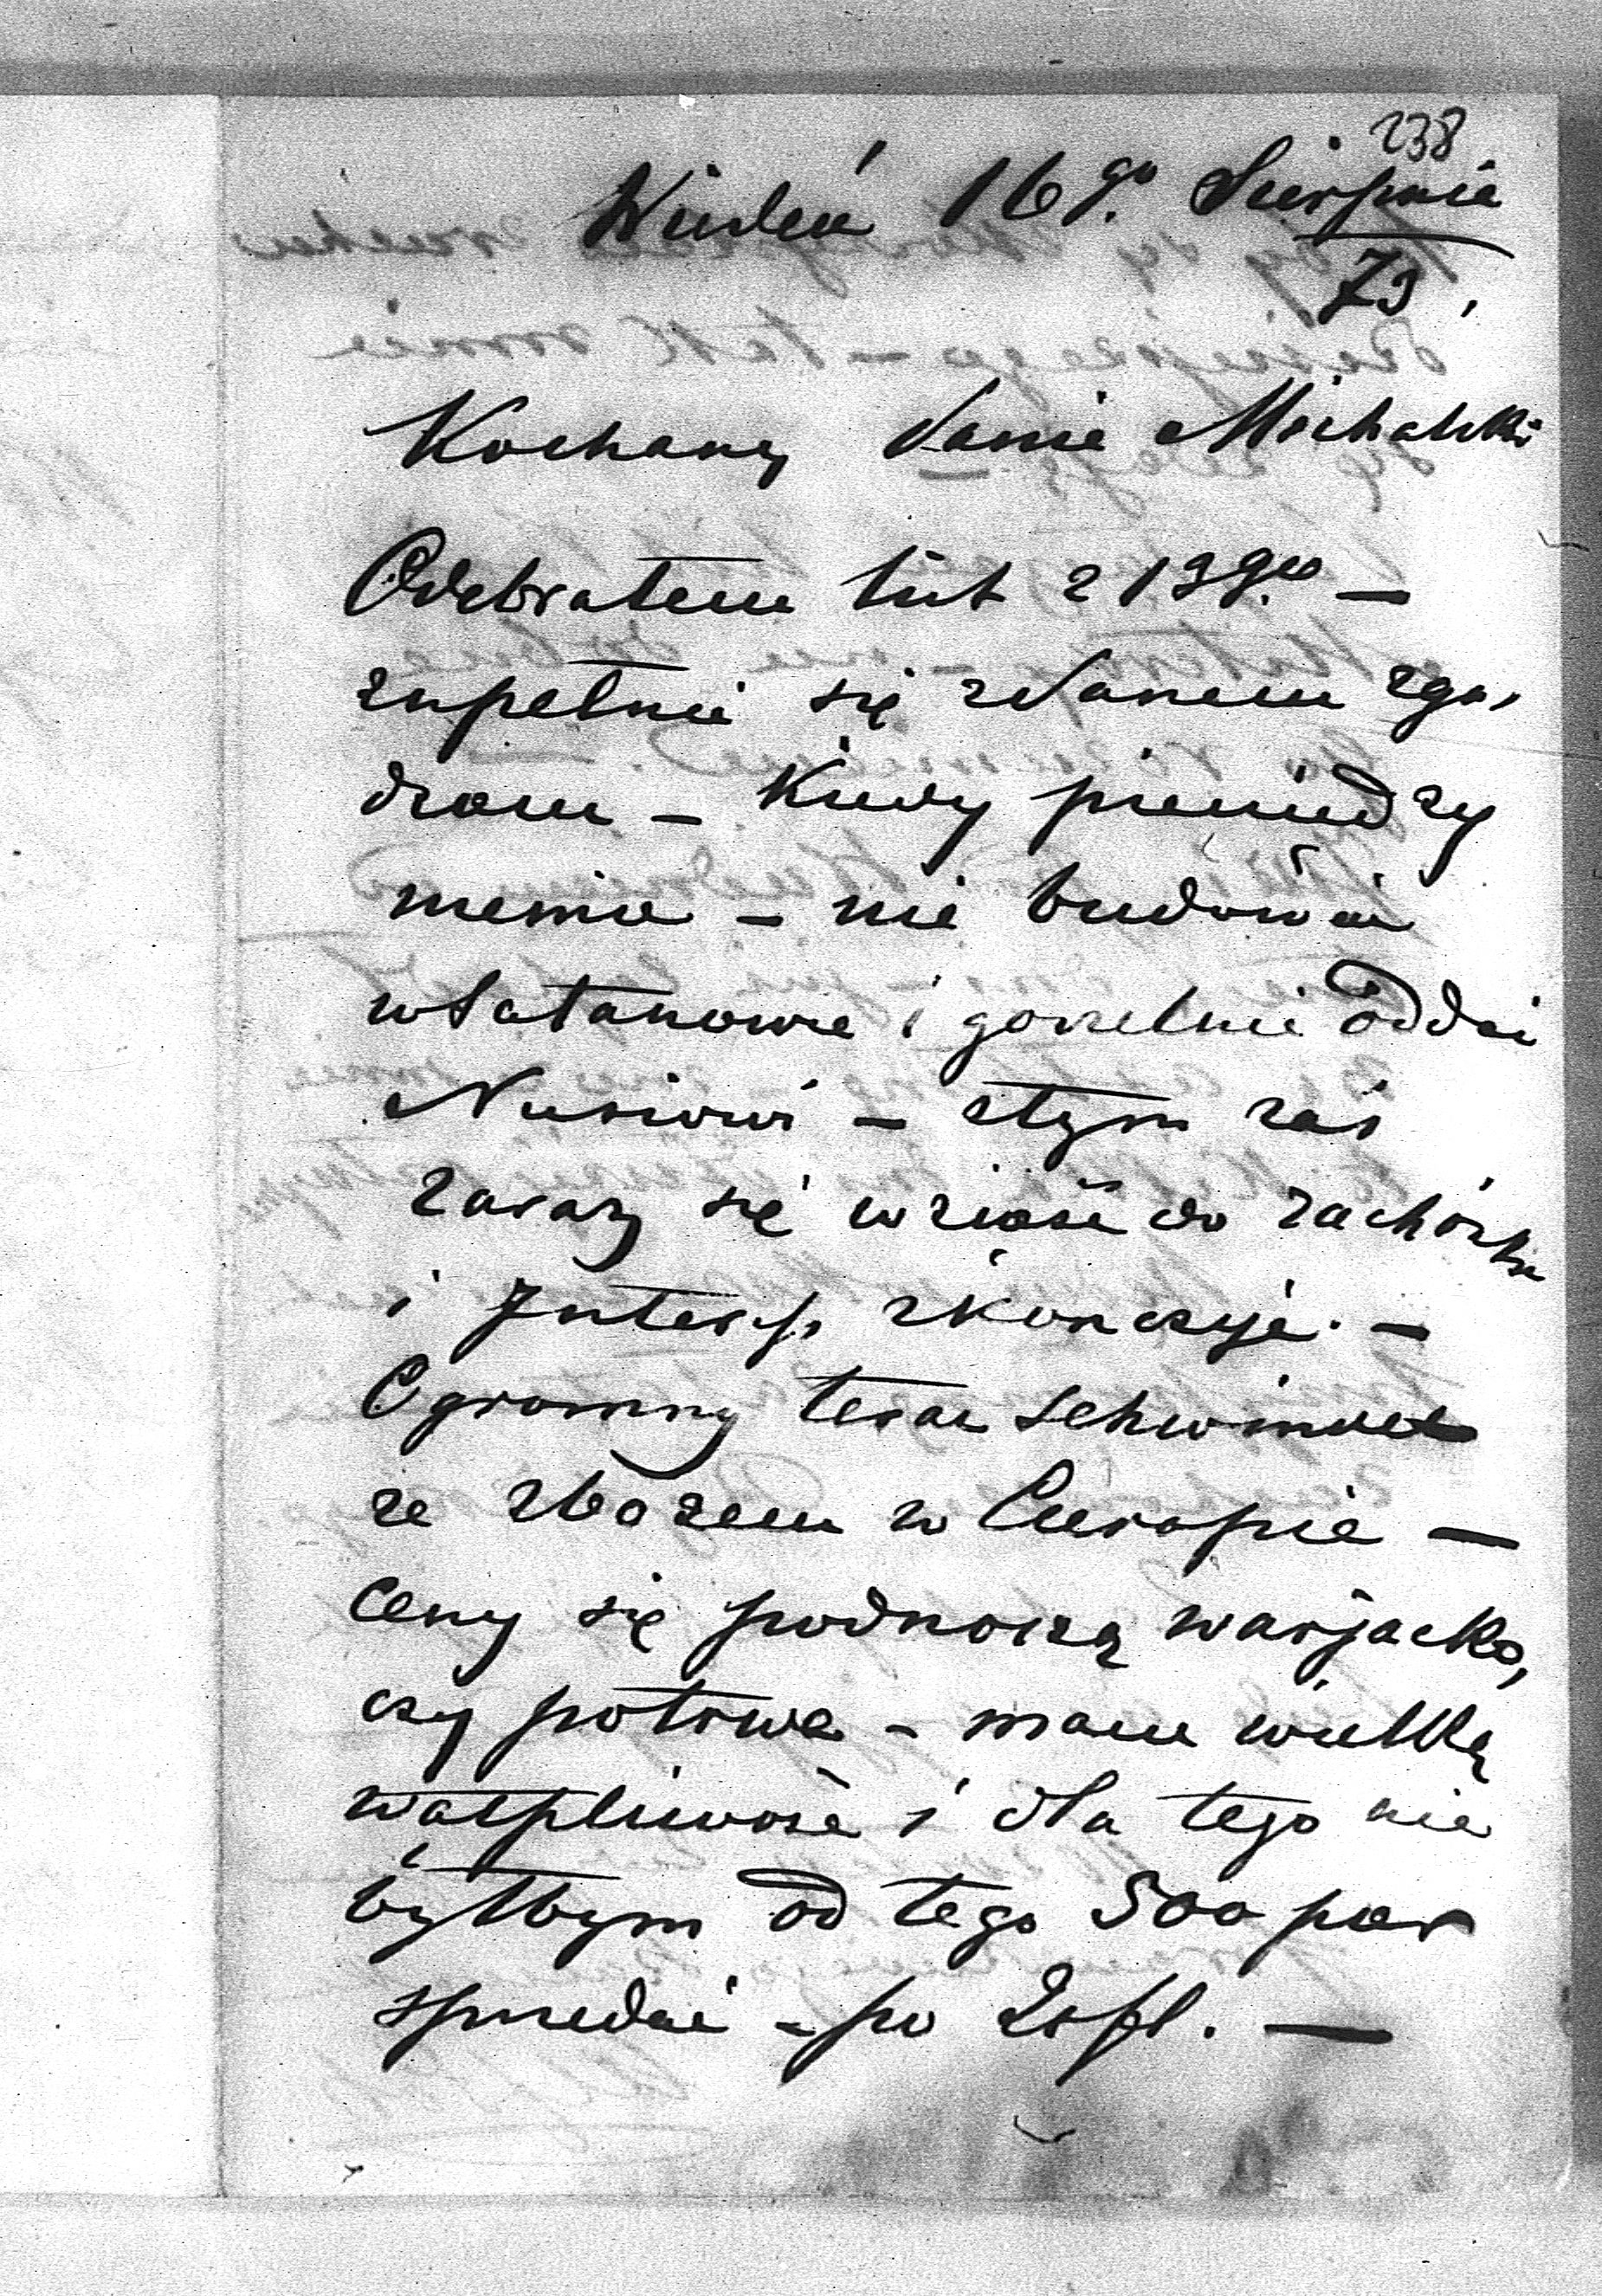 238
Wiedeń 16go Sierpnia
73.
Kochany Panie Michalski
Odebrałem list z 13go —
zupełnie się z Panem zga-
dzam – Kiedy pieniędzy
niema – nie budować
w Satanowie i gorzelnie oddać
Nusiowi – z tym zaś
zaraz się wziąść do
i Interes skończyć. —
Ogromny teraz Schwindel
ze zbożem w Europie —
ceny się podnoszą warjacko,
czy potrwa – mam wielką
wątpliwość i dla tego nie
byłbym od tego 500
sprzedać – po —